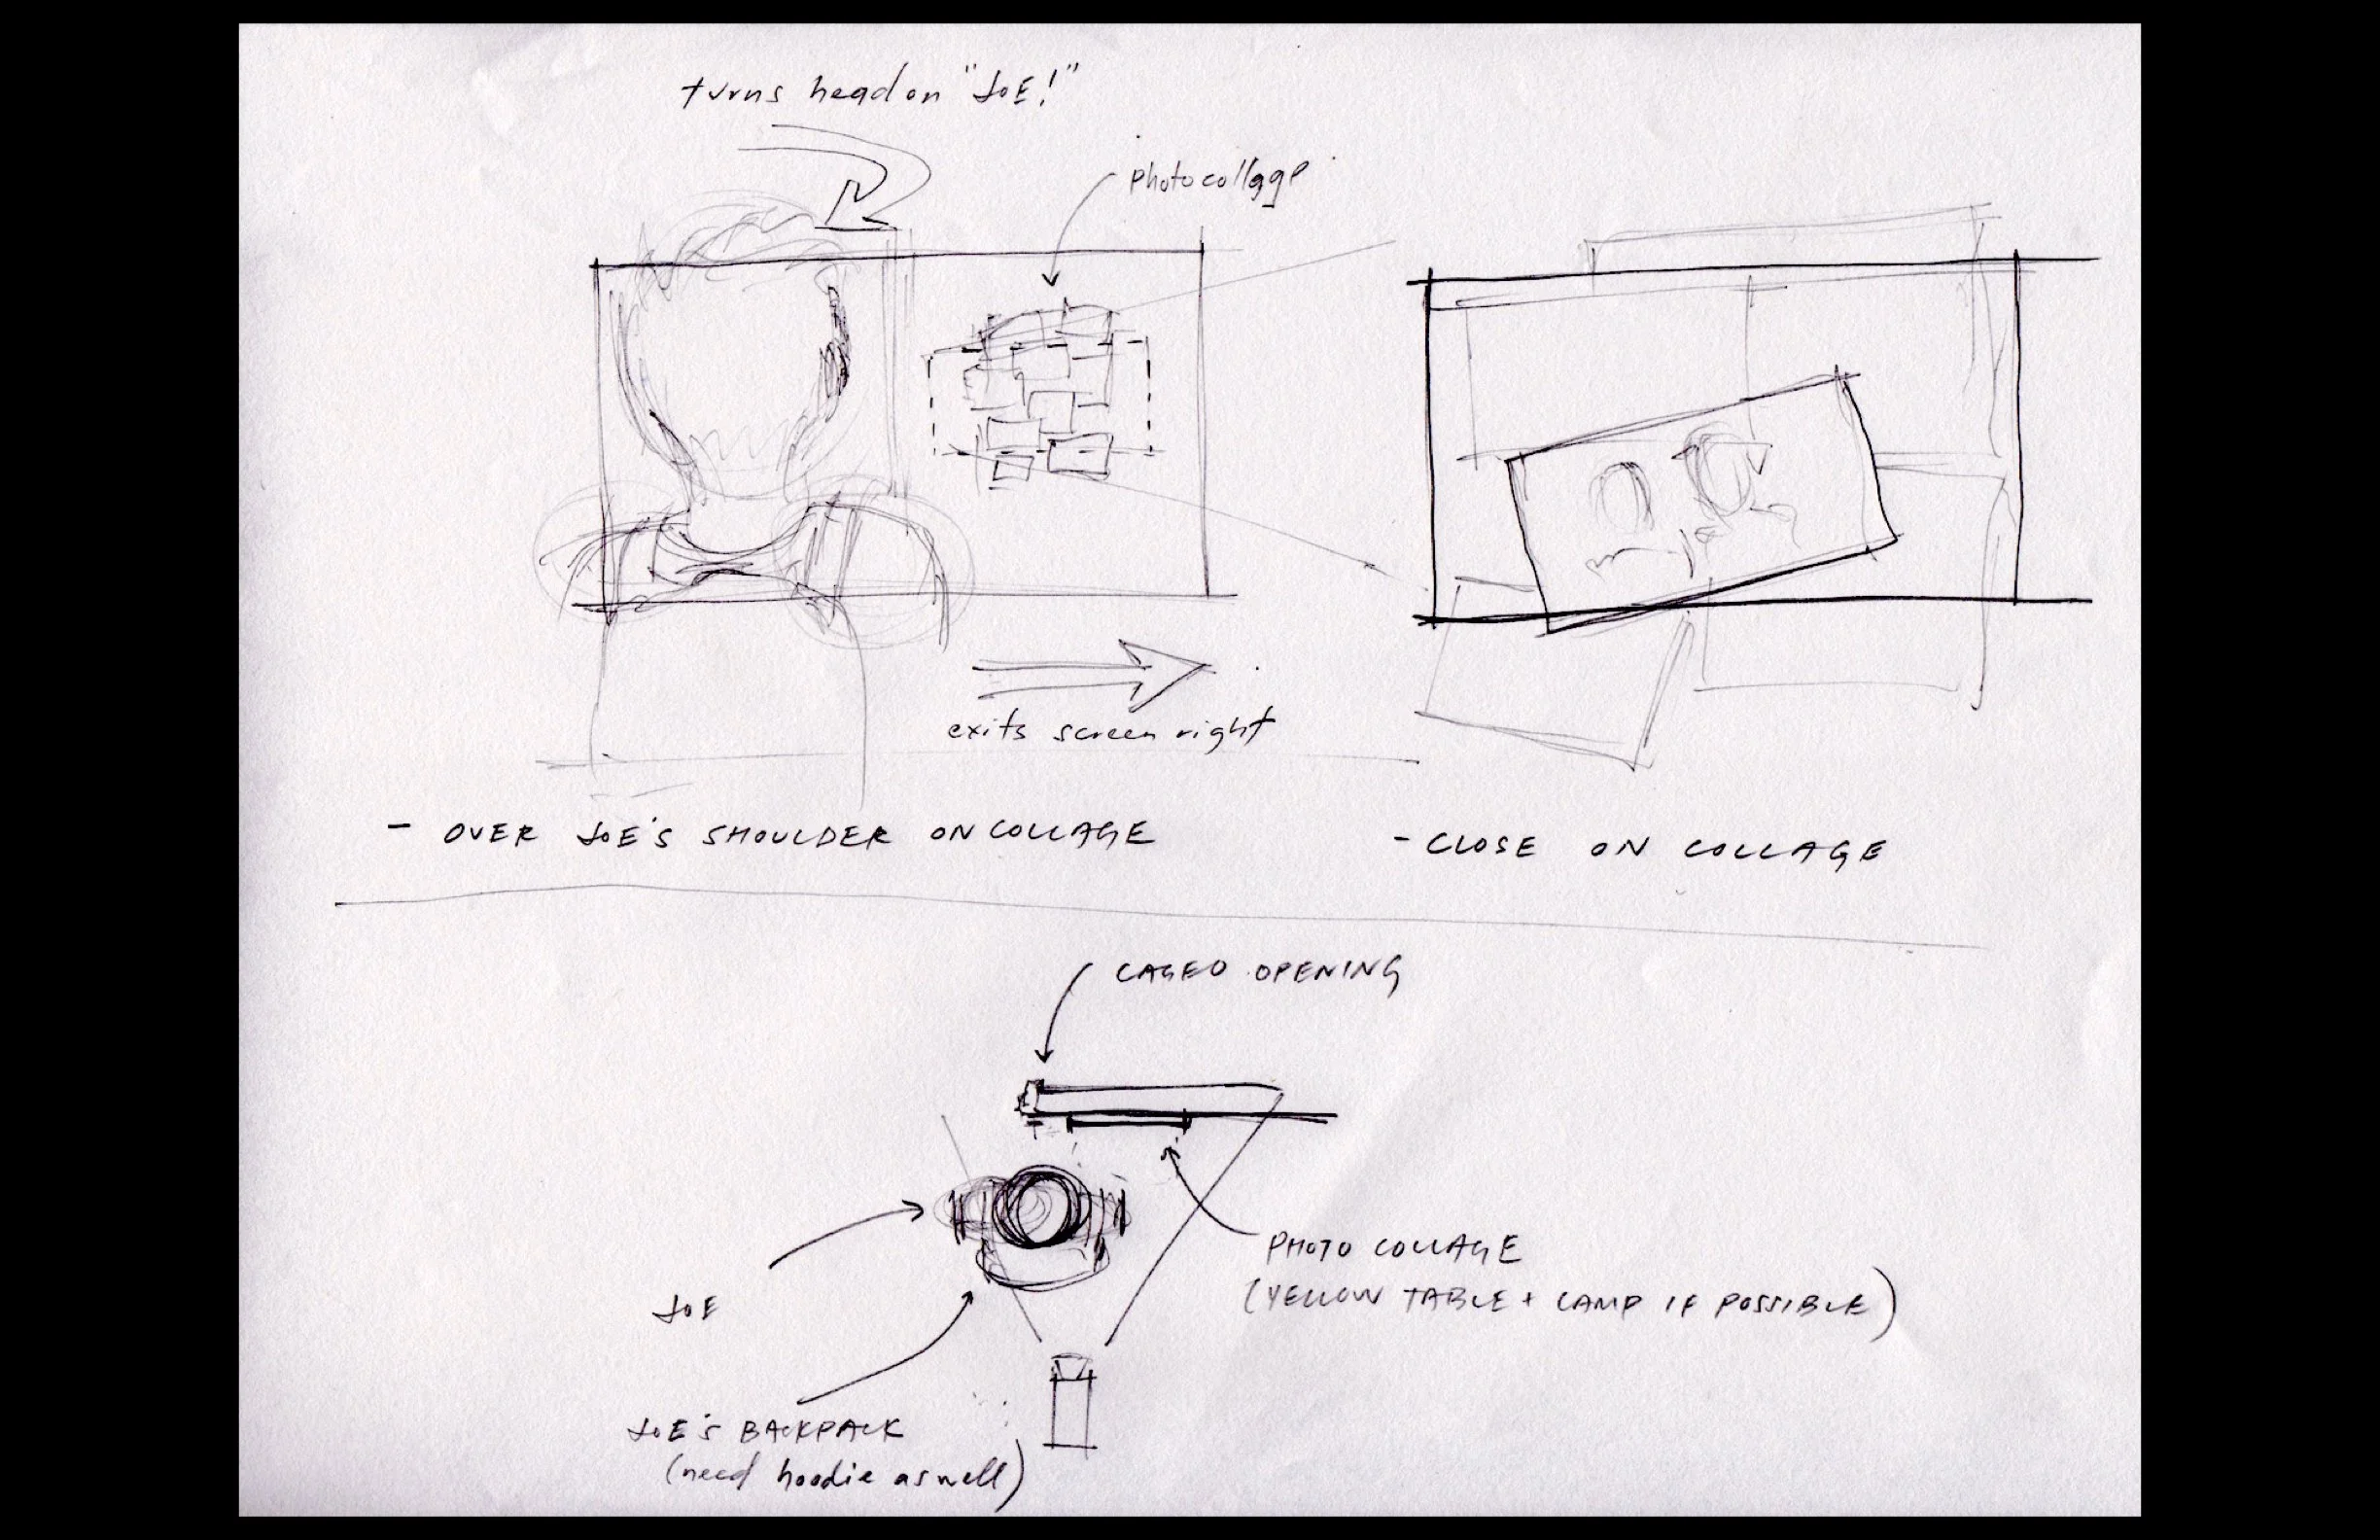 turns head on "JOE!"
photo collage
exits screen right
- OVER JOE'S SHOULDER ON COLLAGE
- CLOSE ON COLLAGE
CAGED OPENING
PHOTO COLLAGE
(YELLOW TABLE + LAMP IF POSSIBLE)
JOE
JOE'S BACKPACK
(need hoodie as well)